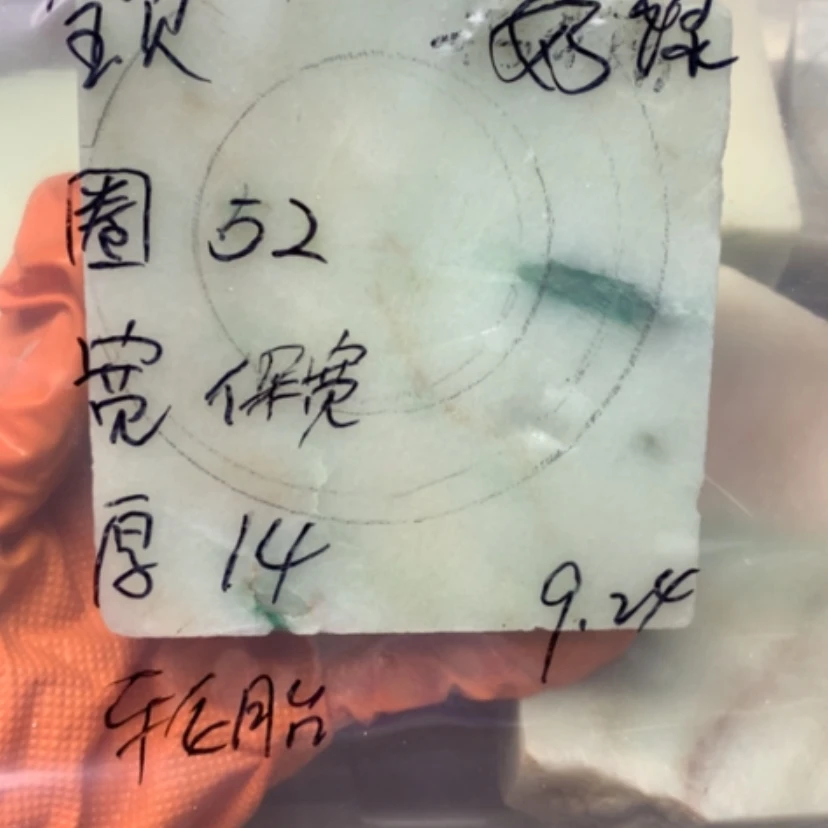 圈 52
宽 保宽
厚 14
9.24
轮胎